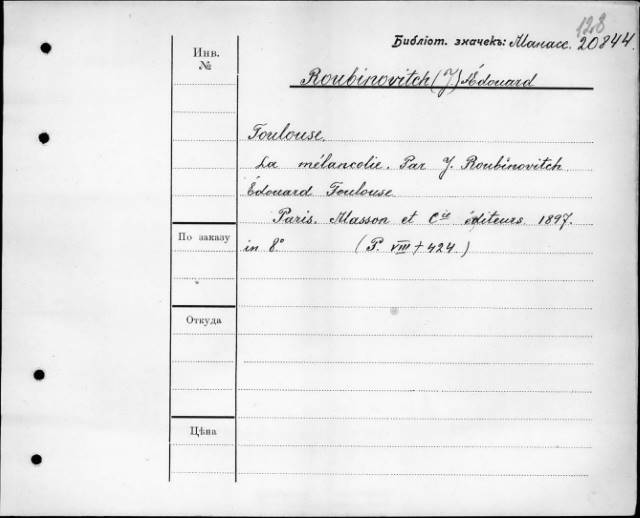 123
Библіот. значекъ: Манасс. 20844.
Инв.
№
Roubinovitch (J) Édouard
Toulouse.
La mélancolie. Par J. Roubinovitch
Édouard Toulouse.
Paris. Masson et Cie éditeurs. 1897.
По заказу
in 8° (P. VIII + 424.)
Откуда
Цѣна